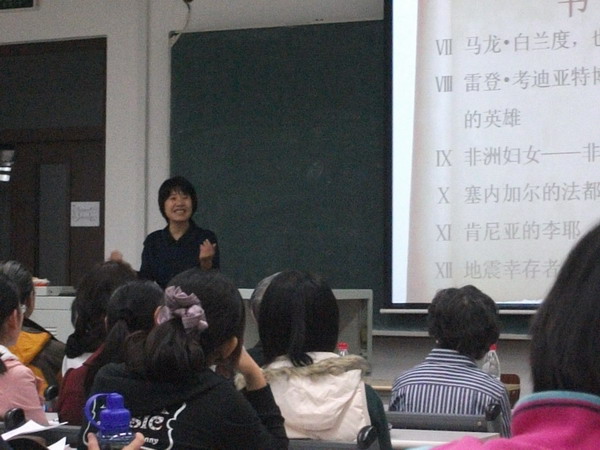 书
Ⅶ 马龙•白兰度，也
Ⅷ 雷登•考迪亚特博
的英雄
Ⅸ 非洲妇女——非
Ⅹ 塞内加尔的法都
Ⅺ 肯尼亚的李耶
Ⅻ 地震幸存者
sic
nny